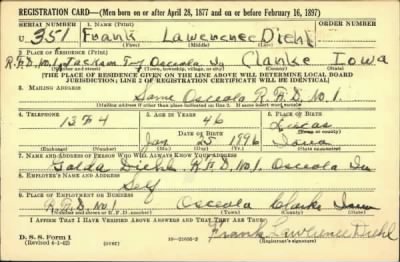 REGISTRATION CARD—(Men born on or after April 28, 1877 and on or before February 16, 1897)
SERIAL NUMBER 1. NAME (Print) ORDER NUMBER
U 351 Frank Lawerence Diehl
(First) (Middle) (Last)
2. PLACE OF RESIDENCE (Print)
R.F.D. No. 1, Jackson Osceola Clarke Iowa
(Number and street) (Town, township, village, or city) (County) (State)
[THE PLACE OF RESIDENCE GIVEN ON THE LINE ABOVE WILL DETERMINE LOCAL BOARD
JURISDICTION; LINE 2 OF REGISTRATION CERTIFICATE WILL BE IDENTICAL]
3. MAILING ADDRESS
Same Osceola R.F.D. No. 1
[Mailing address if other than place indicated on line 2. If same insert word same]
4. TELEPHONE 5. AGE IN YEARS 6. PLACE OF BIRTH
13F4 46 Lucas
DATE OF BIRTH (Town or county)
Jan 25 1896 Iowa
(Mo.) (Day) (Yr.) (State or country)
7. NAME AND ADDRESS OF PERSON WHO WILL ALWAYS KNOW YOUR ADDRESS
Diehl R.F.D. No. 1. Osceola Ia
8. EMPLOYER'S NAME AND ADDRESS
Self
9. PLACE OF EMPLOYMENT OR BUSINESS
R.F.D. No 1 Osceola Clarke Iowa
(Number and street or R. F. D. number) (Town) (County) (State)
I AFFIRM THAT I HAVE VERIFIED ABOVE ANSWERS AND THAT THEY ARE TRUE.
D. S. S. Form 1
(Revised 4-1-42) (over) 16-21630-2 Frank Lawrence Diehl
(Registrant's signature)